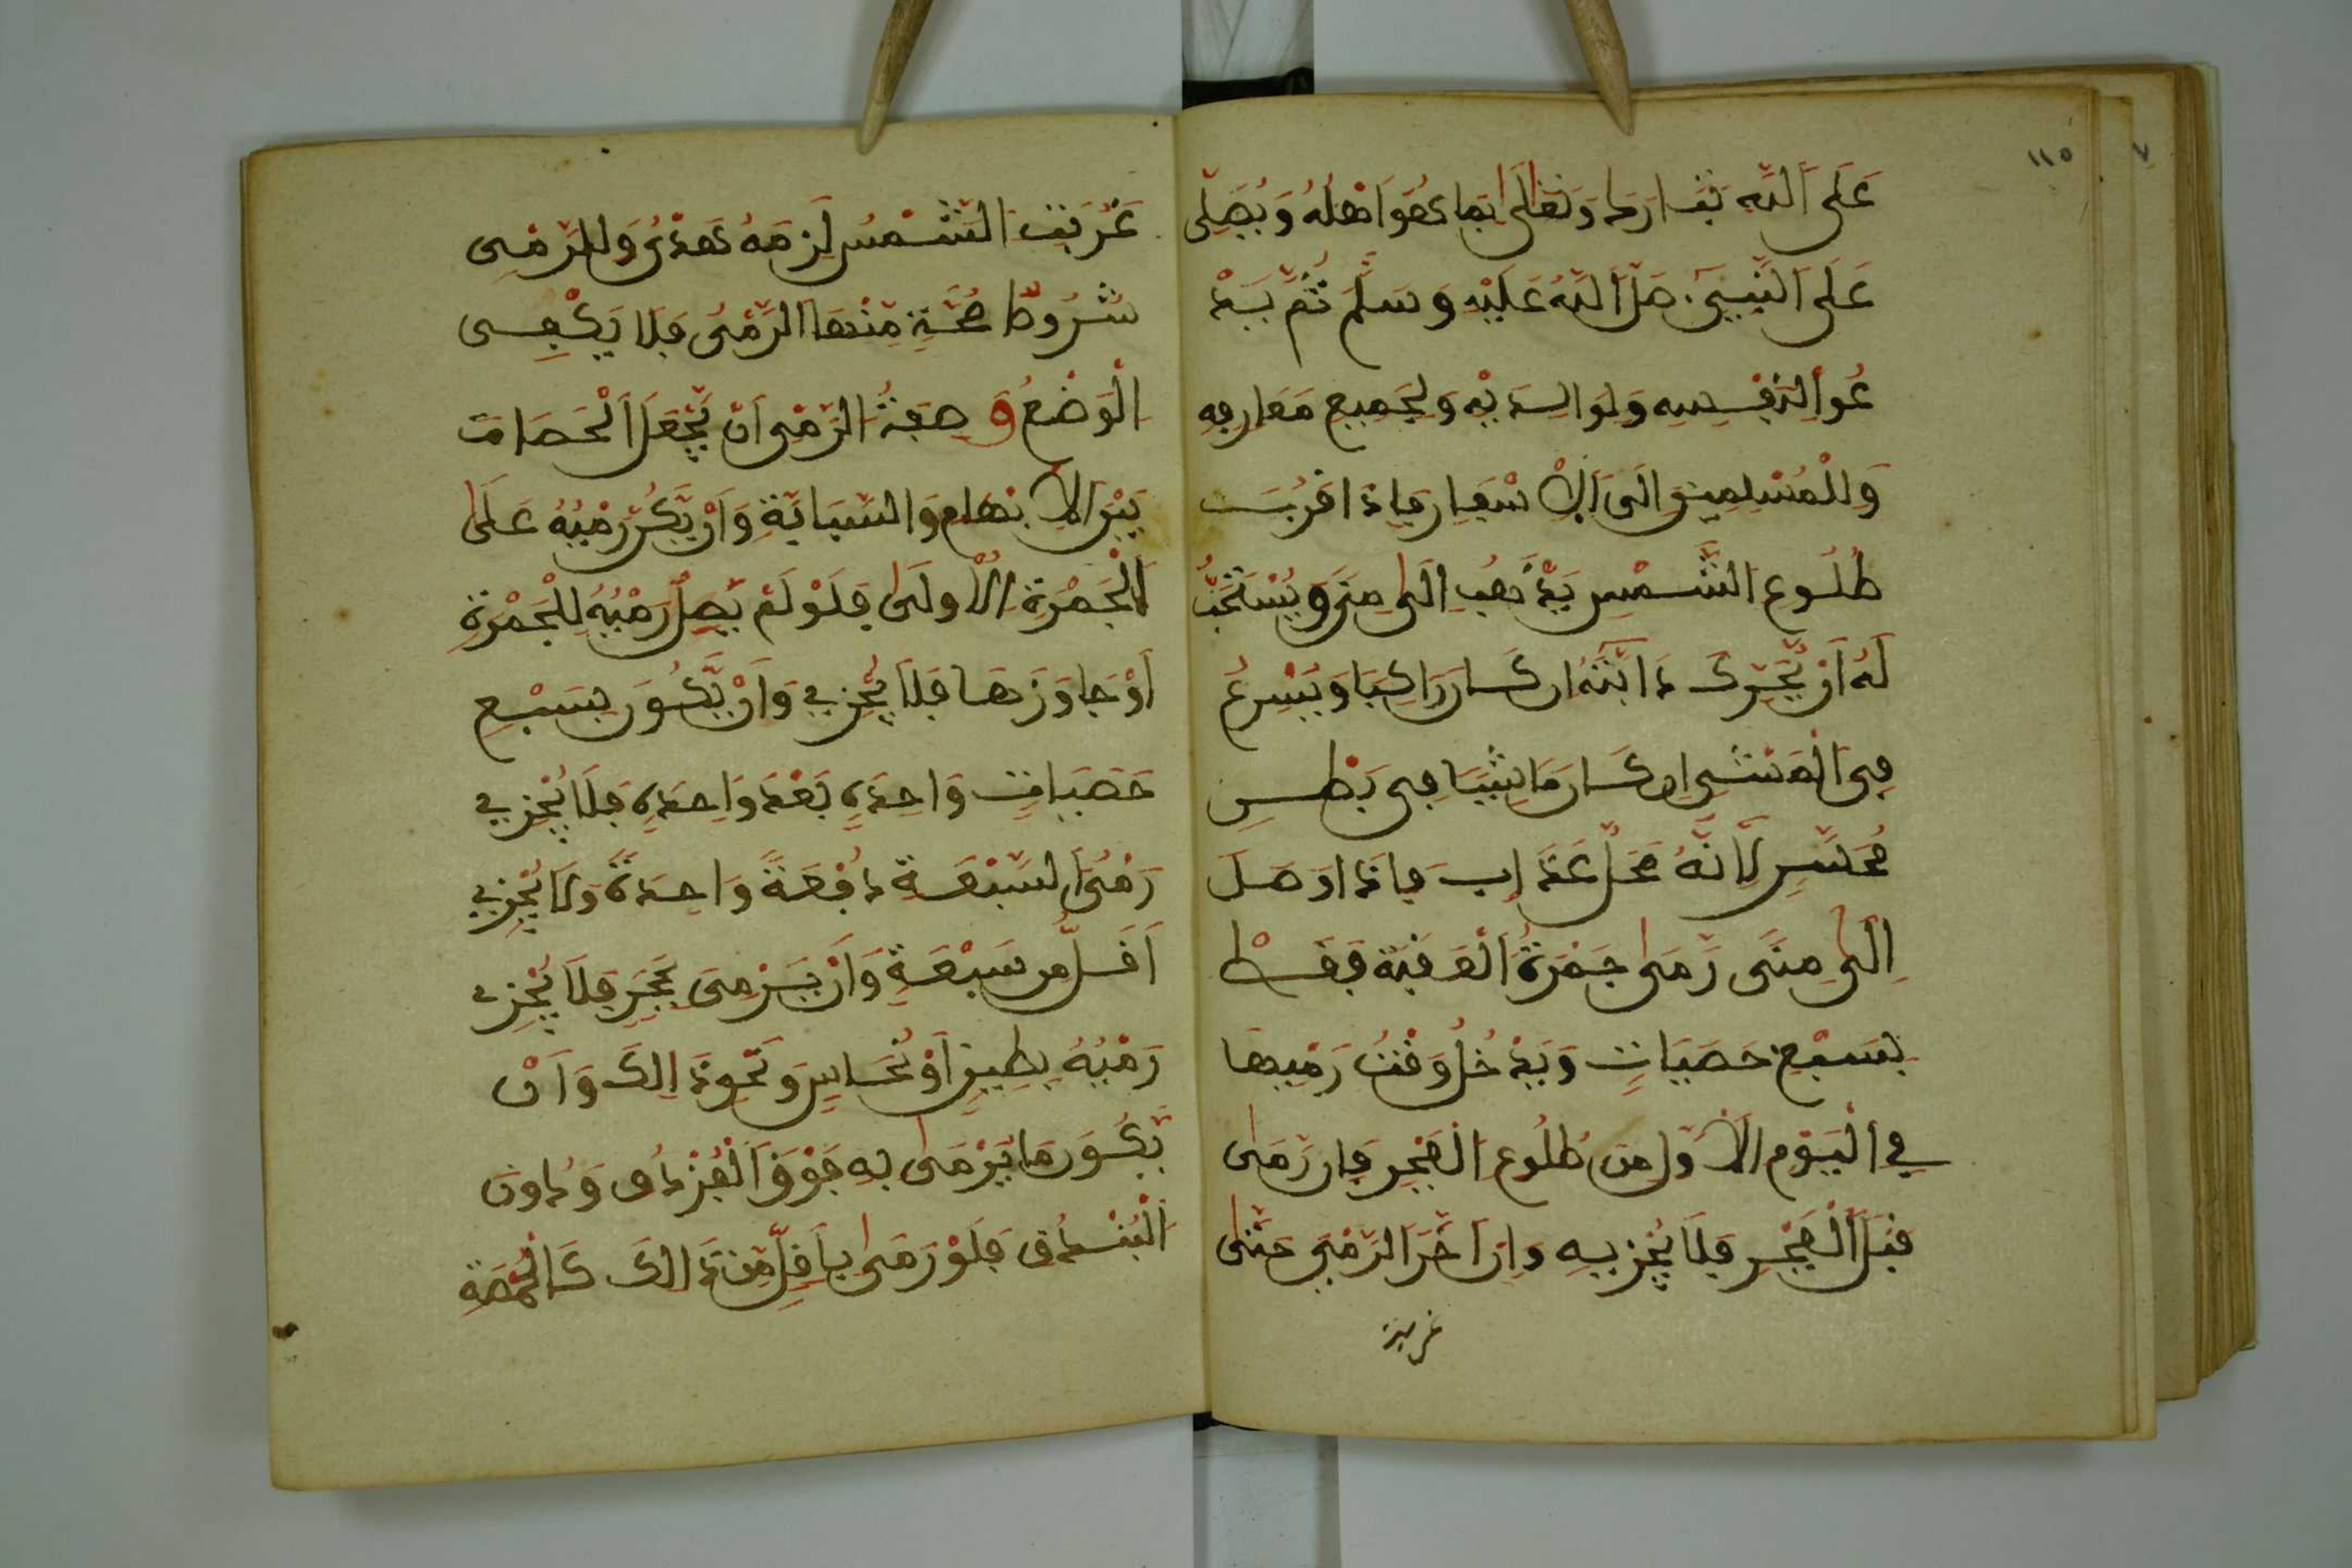 ١١٥
عَلَى اَللَّهِ تَبَارَكَ وَتَعَلَى بِمَا هُوَ اَهْلُهُ وَيُصَلِّى
عَلَى اَلنَّبِيِّ صَلَّ اَللَّهُ عَلَيْهِ وَسَلَّمَ ثُمَّ يَدْ
عُو اَلِنَفْسِهِ وَلِوَالِدَيْهِ وَلِجَمِيعِ مَعَارِفِهِ
وَلِلْمُسْلِمِينَ اِلَى اَلْاِسْفَارِ فَإِذَا قَرُبَتْ
طُلُوعِ الشَّمْسِ يَذْهَبُ اِلَى مِنَى وَيُسْتَحَبُّ
لَهُ اَنْ يُّحَرِّكَ دَابَّتَهُ اِن كَانَ رَاكِبًا وَيُسْرِعُ
فِى الْمَشْىِ اِن كَانَ مَاشِيًا فِى بَطْنِ
مُحَسِّرٍ لِاَنَّهُ مَحَلُّ عَذَابٍ فَإِذَا وَصَلَ
اِلَى مِنًى رَمَى جَمْرَةُ الْعَقَبَةِ فَقَطْ
بِسَبْعِ حَصَيَاتٍ وَيَدْخُلُ وَقْتُ رَمْيِهَا
فِي اَلْيَوْمِ الْاَوَّلِ مِن طُلُوعِ الْفَجْرِ فَإِن رَمَى
قَبْلَ اَلْفَجْرِ فَلَا يُجْزِيهِ وَإِن اَخَّرَ الرَّمْيَ حَتَّى
غربت
غَرَبَتِ الشَّمْسُ لَزِمَهُ هَدْىٌ وَلِلرَّمْىِ
شُرُوطُ صِحَّةٍ مِنْهَا الرَّمْىُ فَلَا يَكْفِى
الْوَضْعُ وَصِفَةُ الرَّمْىِ اَنْ يَّجْعَلَ اَلْحَصَاتَ
بَيْنَ الْاِبْهَامِ وَالسَّبَابَةِ وَاَنْ يَّكُن رَمْيُهُ عَلَى
اَلْجَمْرَةِ الْاُولَى فَلَوْ لَمْ يَصِلْ رَمْيُهُ لِلْجَمْرَةِ
اَوْ جَاوَزَهَا فَلَا يُجْزِي وَاَنْ يَّكُونَ بِسَبْعِ
حَصَيَاتٍ وَاحِدَةٍ بَعْدَ وَاحِدَةٍ فَلَا يُجْزِي
رَمْىُ اَلسَّبْعَةِ دُفْعَةً وَاحِدَةً وَلَا يُجْزِي
اَقَلُّ مِن سَبْعَةٍ وَاَنْ يَّرْمِىَ بِحَجَرٍ فَلَا يُجْزِي
رَمْيُهُ بِطِينٍ اَوْ نُحَاسٍ وَنَحْوِ ذَالِكَ وَاَنْ
يَّكُونَ مَا يَرْمَى بِهِ فَوْقَ اَلْفُزْدُقِ وَدُونَ
اَلْبُنْدُقِ فَلَوْ رَمَى بِاَقَلِّ مِن ذَالِكَ كَالْحِمَّصَةِ